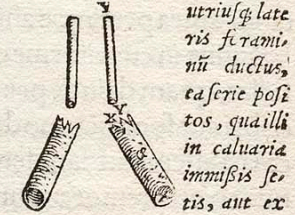 utriusq; late
ris forami-
nū ductus,
ea serie posi
tos, qua illi
in caluaria
immißis se-
tis, aut ex
Y
Y
X
S